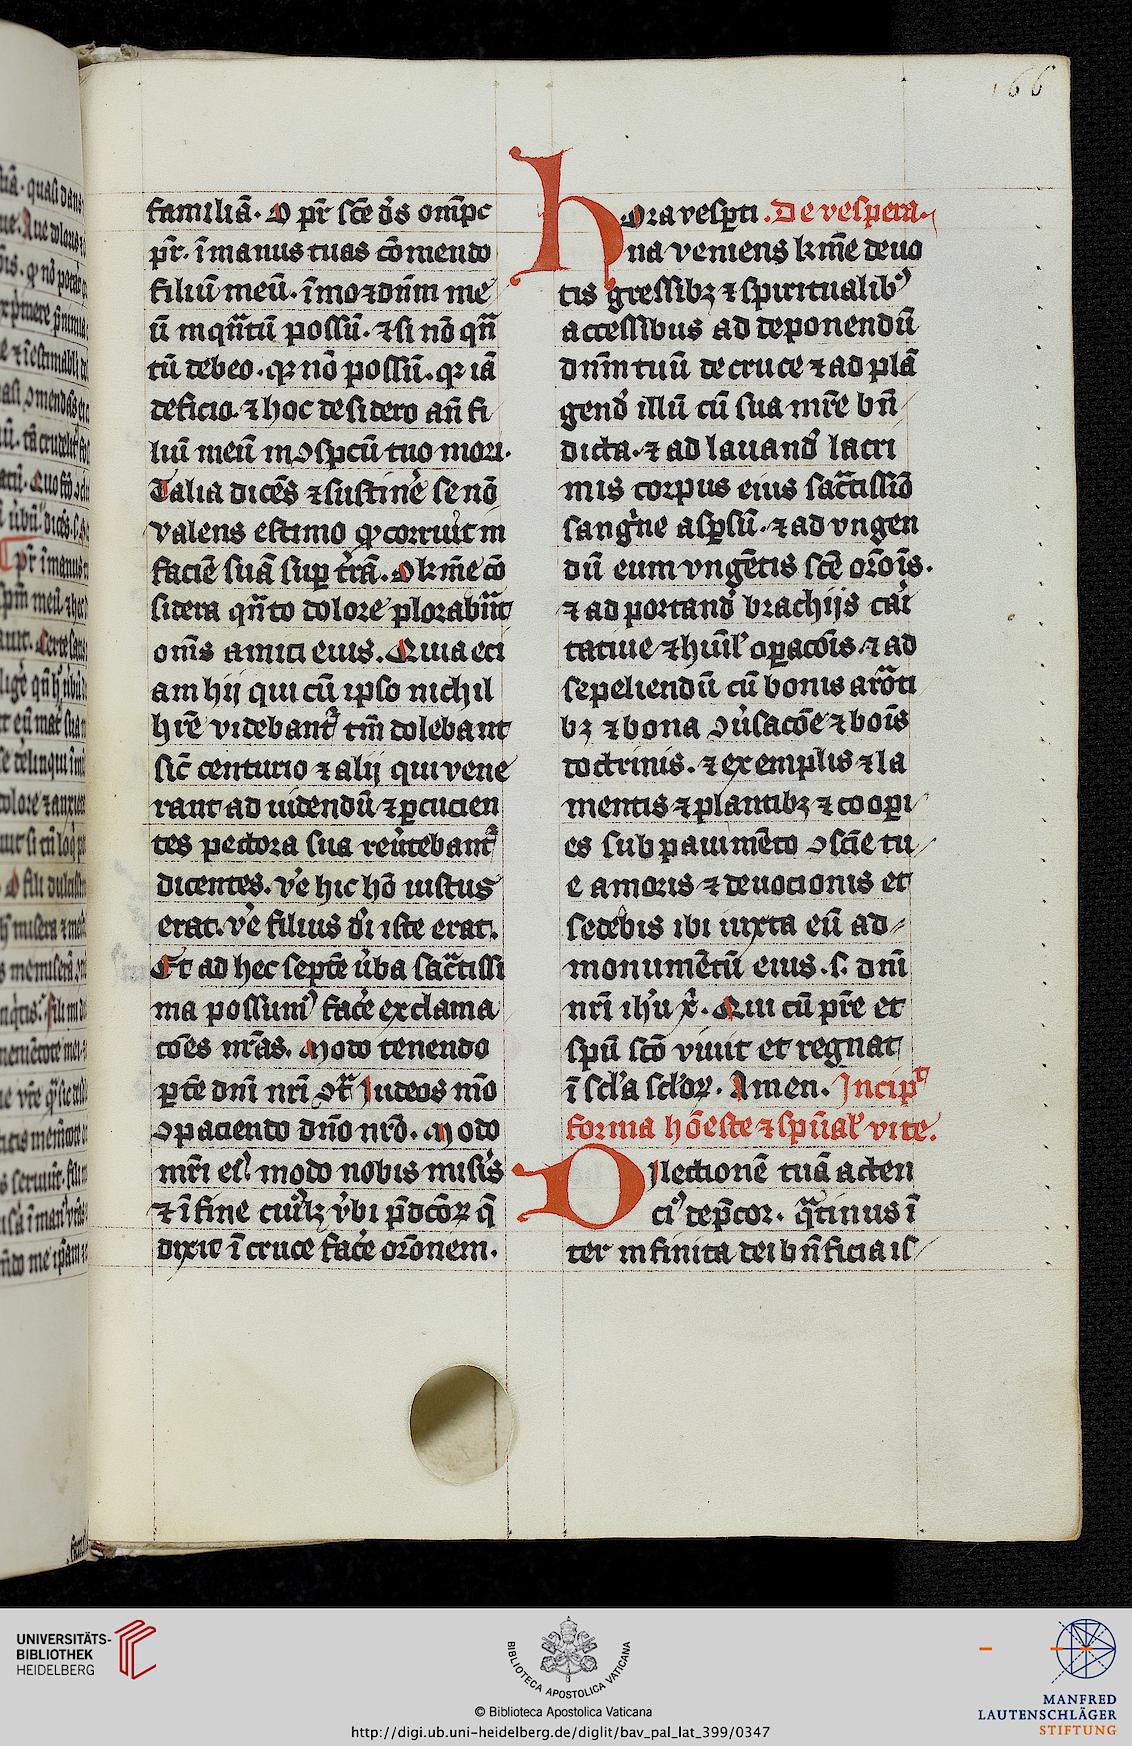 166
familiā. O pr̄ sc̄e ds̄ om̄pc
pr̄. ī manus tuas cōmendo
filiū meū. īmo ⁊ dn̄m me
ū inqn̄tū possū. ⁊ si nō qn̄
tū debeo. qꝛ nō possū. qꝛ iā
deficio. ⁊ hoc desidero an̄ fi
liū meū in ↄspcū tuo mori.
Talia dicēs ⁊ sustinē se nō
valens estimo ꝙ corruit in
faciē suā suꝑ trā. O kr̄me cō
sidera qn̄to dolore plorabūt
om̄s amici eius. Quia eci
am hij qui cū ipso nichil
hr̄e videbant᷑ tm̄ dolebant
sic̄ centurio ⁊ alij qui vene
rant ad uidendū ⁊ ꝑcucien
tes pectora sua reu̓tebant᷑
dicentes. ve̓ hic hō iustus
erat. ve̓ filius di̓ iste erat.
Et ad hec septē u̓ba sāctissi
ma possumꝰ face̓ exclama
cōes nr̄as. Modo tenendo
ꝑtē dn̄i nr̄i ↄt̄ Iudeos mō
ↄpaciendo dn̄o nr̄o. Modo
mr̄i eiꝰ modo nobis misis̓
⁊ ī fine cuil̓ꝫ v̓bi p̄dcōꝝ q̄
dixit ī cruce face̓ orōnem.
hOra vesꝑti. De vespera.
na veniens kr̄me deuo
tis gressibꝫ ⁊ spiritualibꝰ
accessibus ad deponendū
dn̄m tuū de cruce ⁊ ad plā
gend̓ illū cū sua mr̄e bn̄
dicta. ⁊ ad lauand̓ lacri
mis corpus eius sāctissiō
sangn̓e asꝑsū. ⁊ ad vngen
dū eum vngētis sc̄e orōis̄.
⁊ ad portand̓ brachijs cari̓
tatiue ⁊ hūil̓ oꝑacōis̄. ⁊ ad
sepeliendū cū bonis arōti
bꝫ ⁊ bona ↄu̓sacōe ⁊ bois̄
doctrinis. ⁊ exemplis ⁊ la
mentis ⁊ plantibꝫ ⁊ cooꝑi
es sub pauimēto ↄscīe tu
e amoris ⁊ deuocionis et
sedebis ibi iuxta eū ad
monumētū eius. s. dn̄i
nr̄i ih̓u x̓. Qui cū pr̄e et
spū scō viuit et regnat
ī scl̓a scl̓oꝝ. Amen. Incip̓t
forma hōeste ⁊ spūal̓ vite.
DIlectionē tuā acten
ciꝰ dep̄cor. qͣtinus ī
ter infinita dei bn̄ficia il
UNIVERSITÄTS-
BIBLIOTHEK
HEIDELBERG
BIBLIOTECA APOSTOLICA VATICANA
© Biblioteca Apostolica Vaticana
http://digi.ub.uni-heidelberg.de/diglit/bav_pal_lat_399/0347
MANFRED
LAUTENSCHLÄGER
STIFTUNG